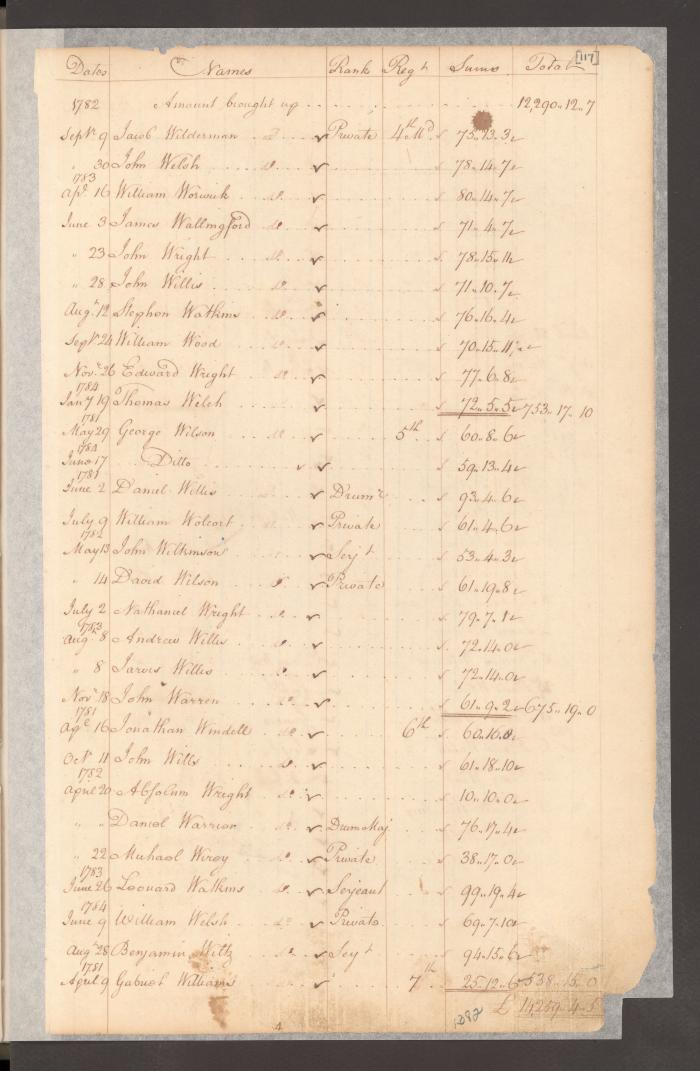 [117]
Dates Names Rank Regt Sums Total
1782 Amount brought up 12,290..12..7
Septr 9 Jacob Wilderman Do Private 4th Md. 75..13..3
" 30 John Welsh Do 78..14..7
1783
Apl. 16 William Worwick Do 80..14..7
June 3 James Wallingford Do 71..4..7
" 23 John Wright Do 78..15..11
" 28 John Willis Do 71..10..7
Augt 12 Stephen Watkins Do 76..16..4
Septr 24 William Wood Do 70..15..11
Novr 26 Edward Wright Do 77..6..8
1784
Jany 19 Thomas Welch 72..5..5 753..17..10
1781
May 29 George Wilson 5th 60..8..6
June 17 Ditto 59..13..4
1781
June 2 Daniel Willis Drumr 93..4..6
July 9 William Wolcort Private 61..4..6
1782
May 13 John Wilkinson Serjt 53..4..3
" 14 David Wilson Do Private 61..19..8
July 2 Nathaniel Wright Do 79..7..1
1783
Augt 8 Andrew Willis Do 72..14..0
" 8 Jarvis Willis Do 72..14..0
Novr 18 John Warren Do 61..9..2 675..19..0
1781
16 Jonathan Windell Do 6th 60..10..8
Octr 11 John Wills Do 61..18..10
1782
April 20 Absolum Wright Do 10..10..0
" " Daniel Warrior Do Drum Maj 76..17..4
" 22 Michael Wirey Do Private 38..17..0
1783
June 26 Leonard Watkins Do Serjeant 99..19..4
1784
June 9 William Welsh Do Private 69..7..10
Augt 28 Benjamin Wiltz Do Serjt 94..15..6
1781
April 9 Gabriel Williams 7th 25..12..6 538..15..0
£ 14,259..4..5